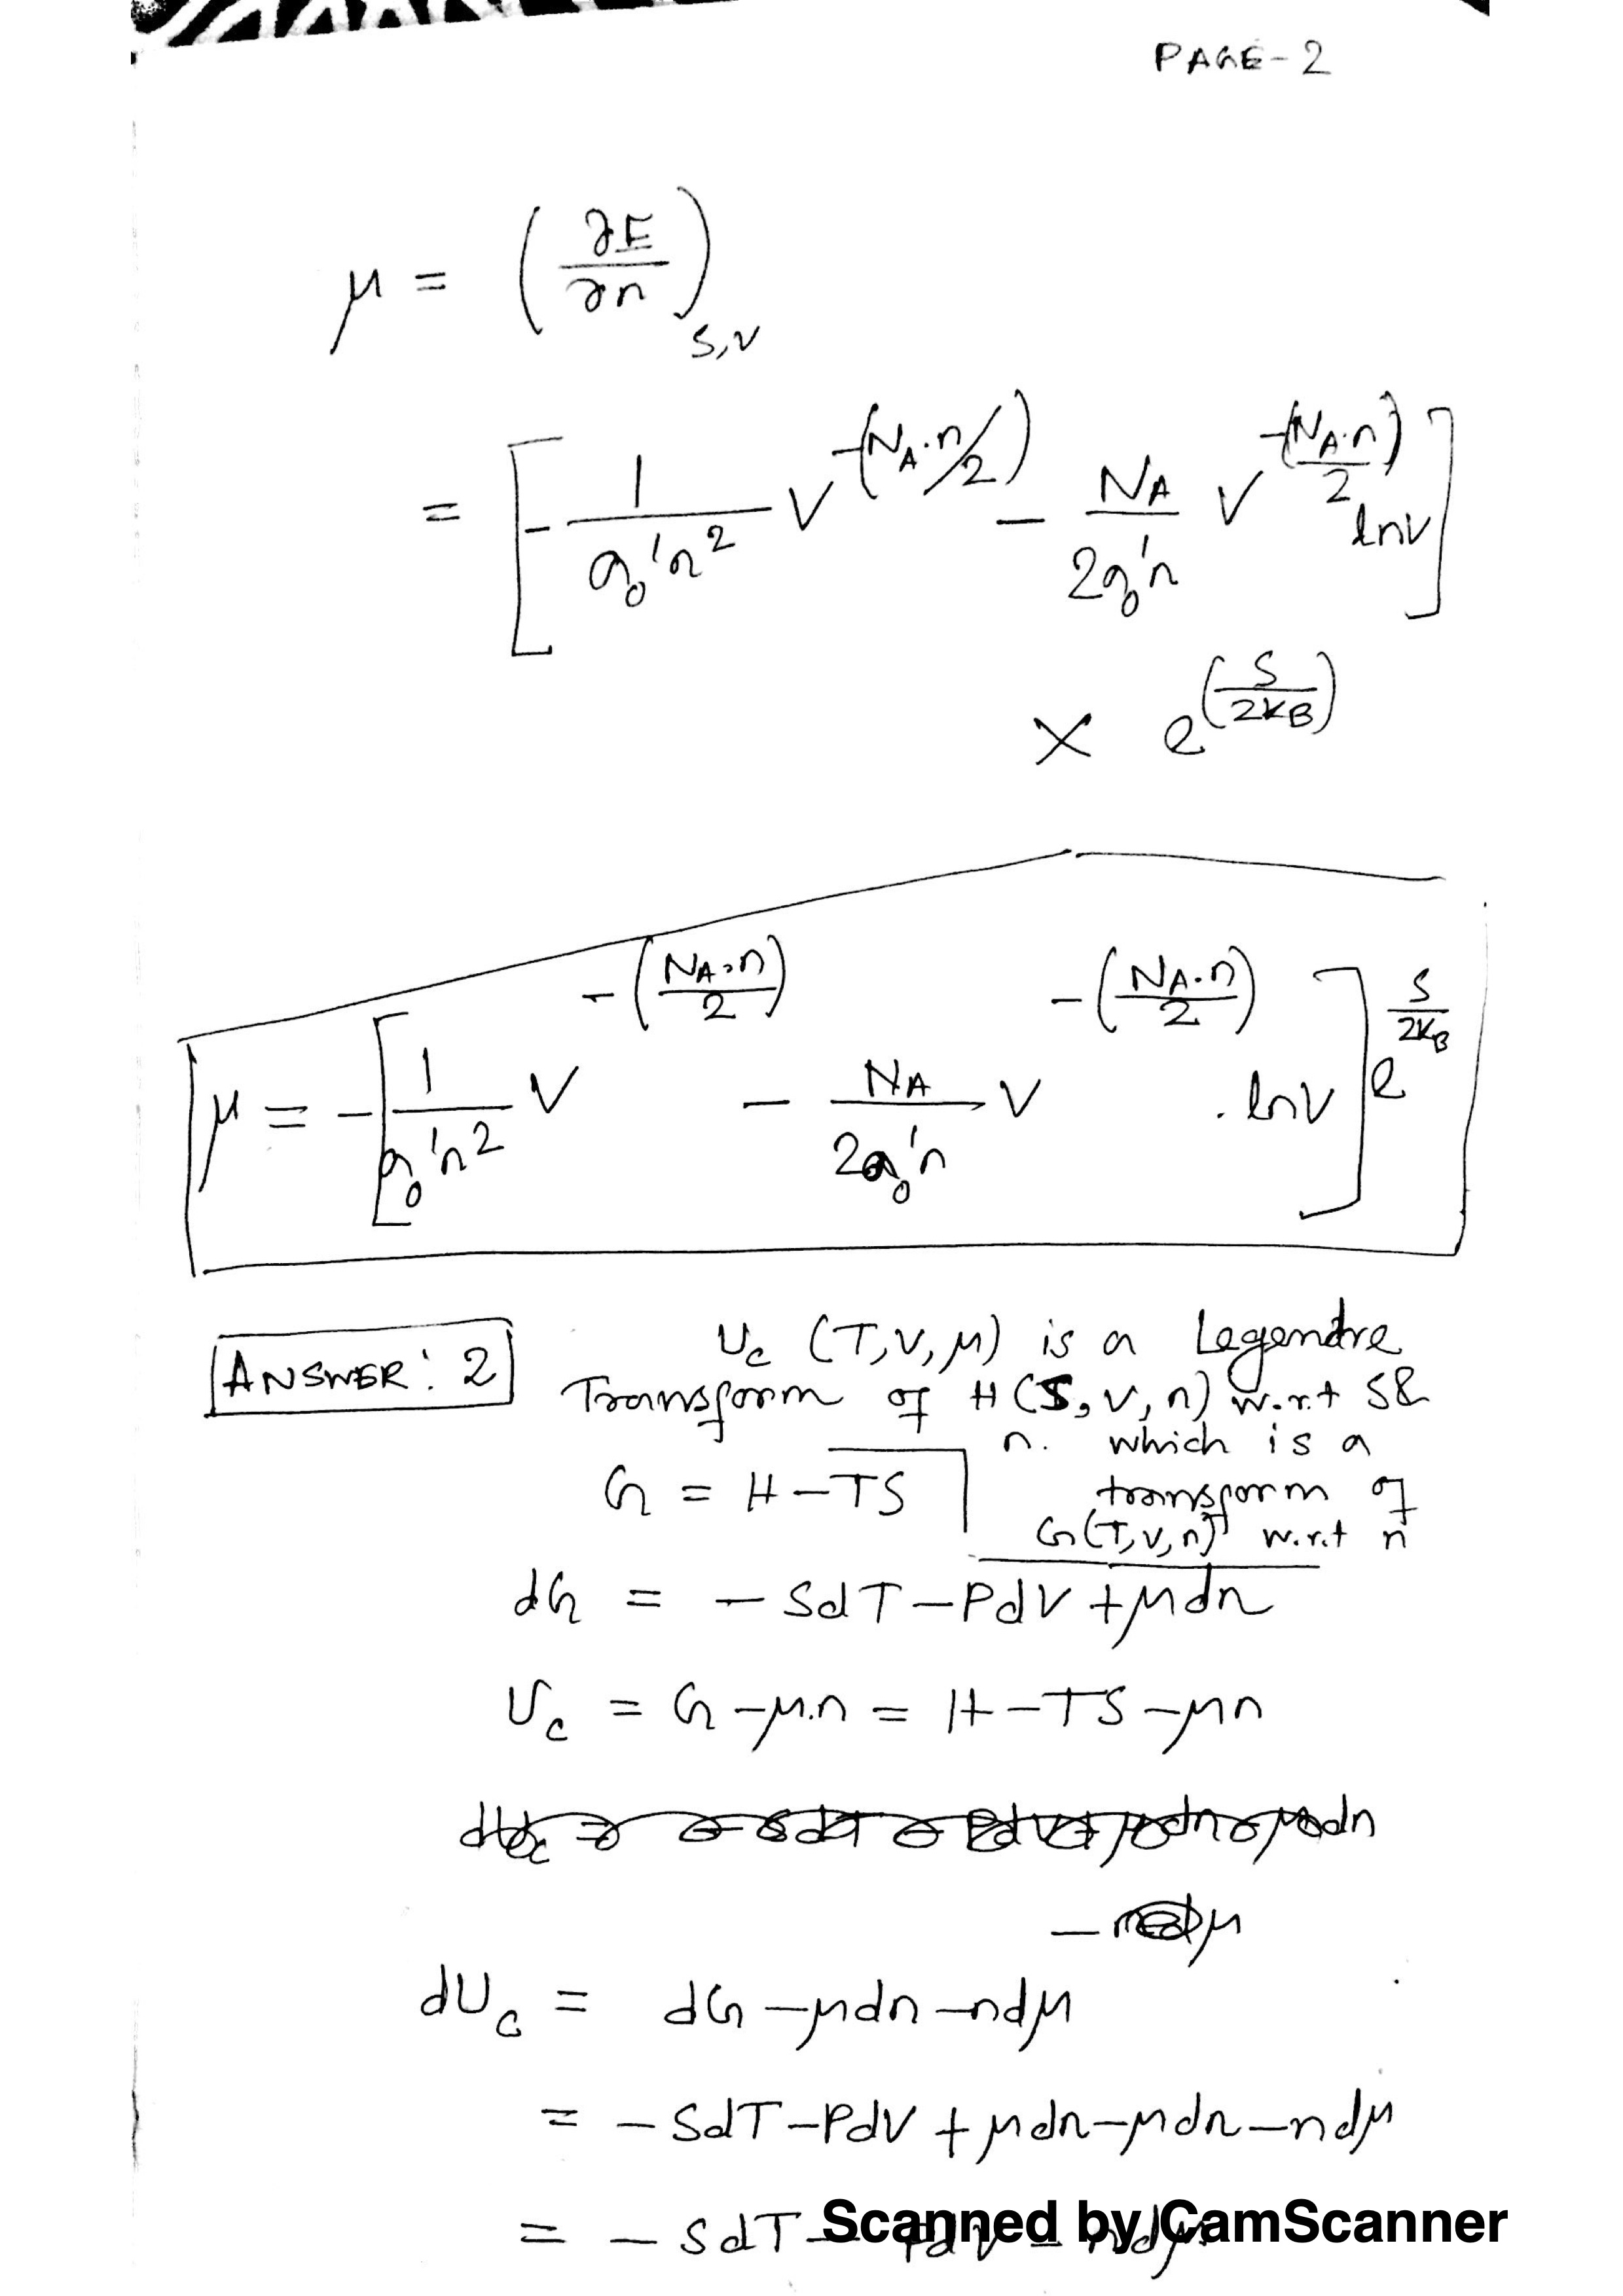 PAGE-2
μ = (∂E/∂n)_{S,V}
= [-1/(g₀'n²) V^{-(N_A·n/2)} - N_A/(2g₀'n) V^{-(N_A·n)/2} lnV]
× e^{(S/2k_B)}
μ = -[1/(g₀'n²) V^{-(N_A·n/2)} - N_A/(2g₀'n) V^{-(N_A·n/2)} . lnV] e^{S/2k_B}
ANSWER: 2
U_c (T,V,μ) is a Legendre
Transform of H(S,V,n) w.r.t S &
n. which is a
transform of
G(T,V,n) w.r.t n
G = H-TS
dG = -SdT-PdV+μdn
U_c = G-μ.n = H-TS-μn
dU_c = dG-μdn-ndμ
= -SdT-PdV+μdn-μdn-ndμ
= -SdT-PdV-ndμ
Scanned by CamScanner